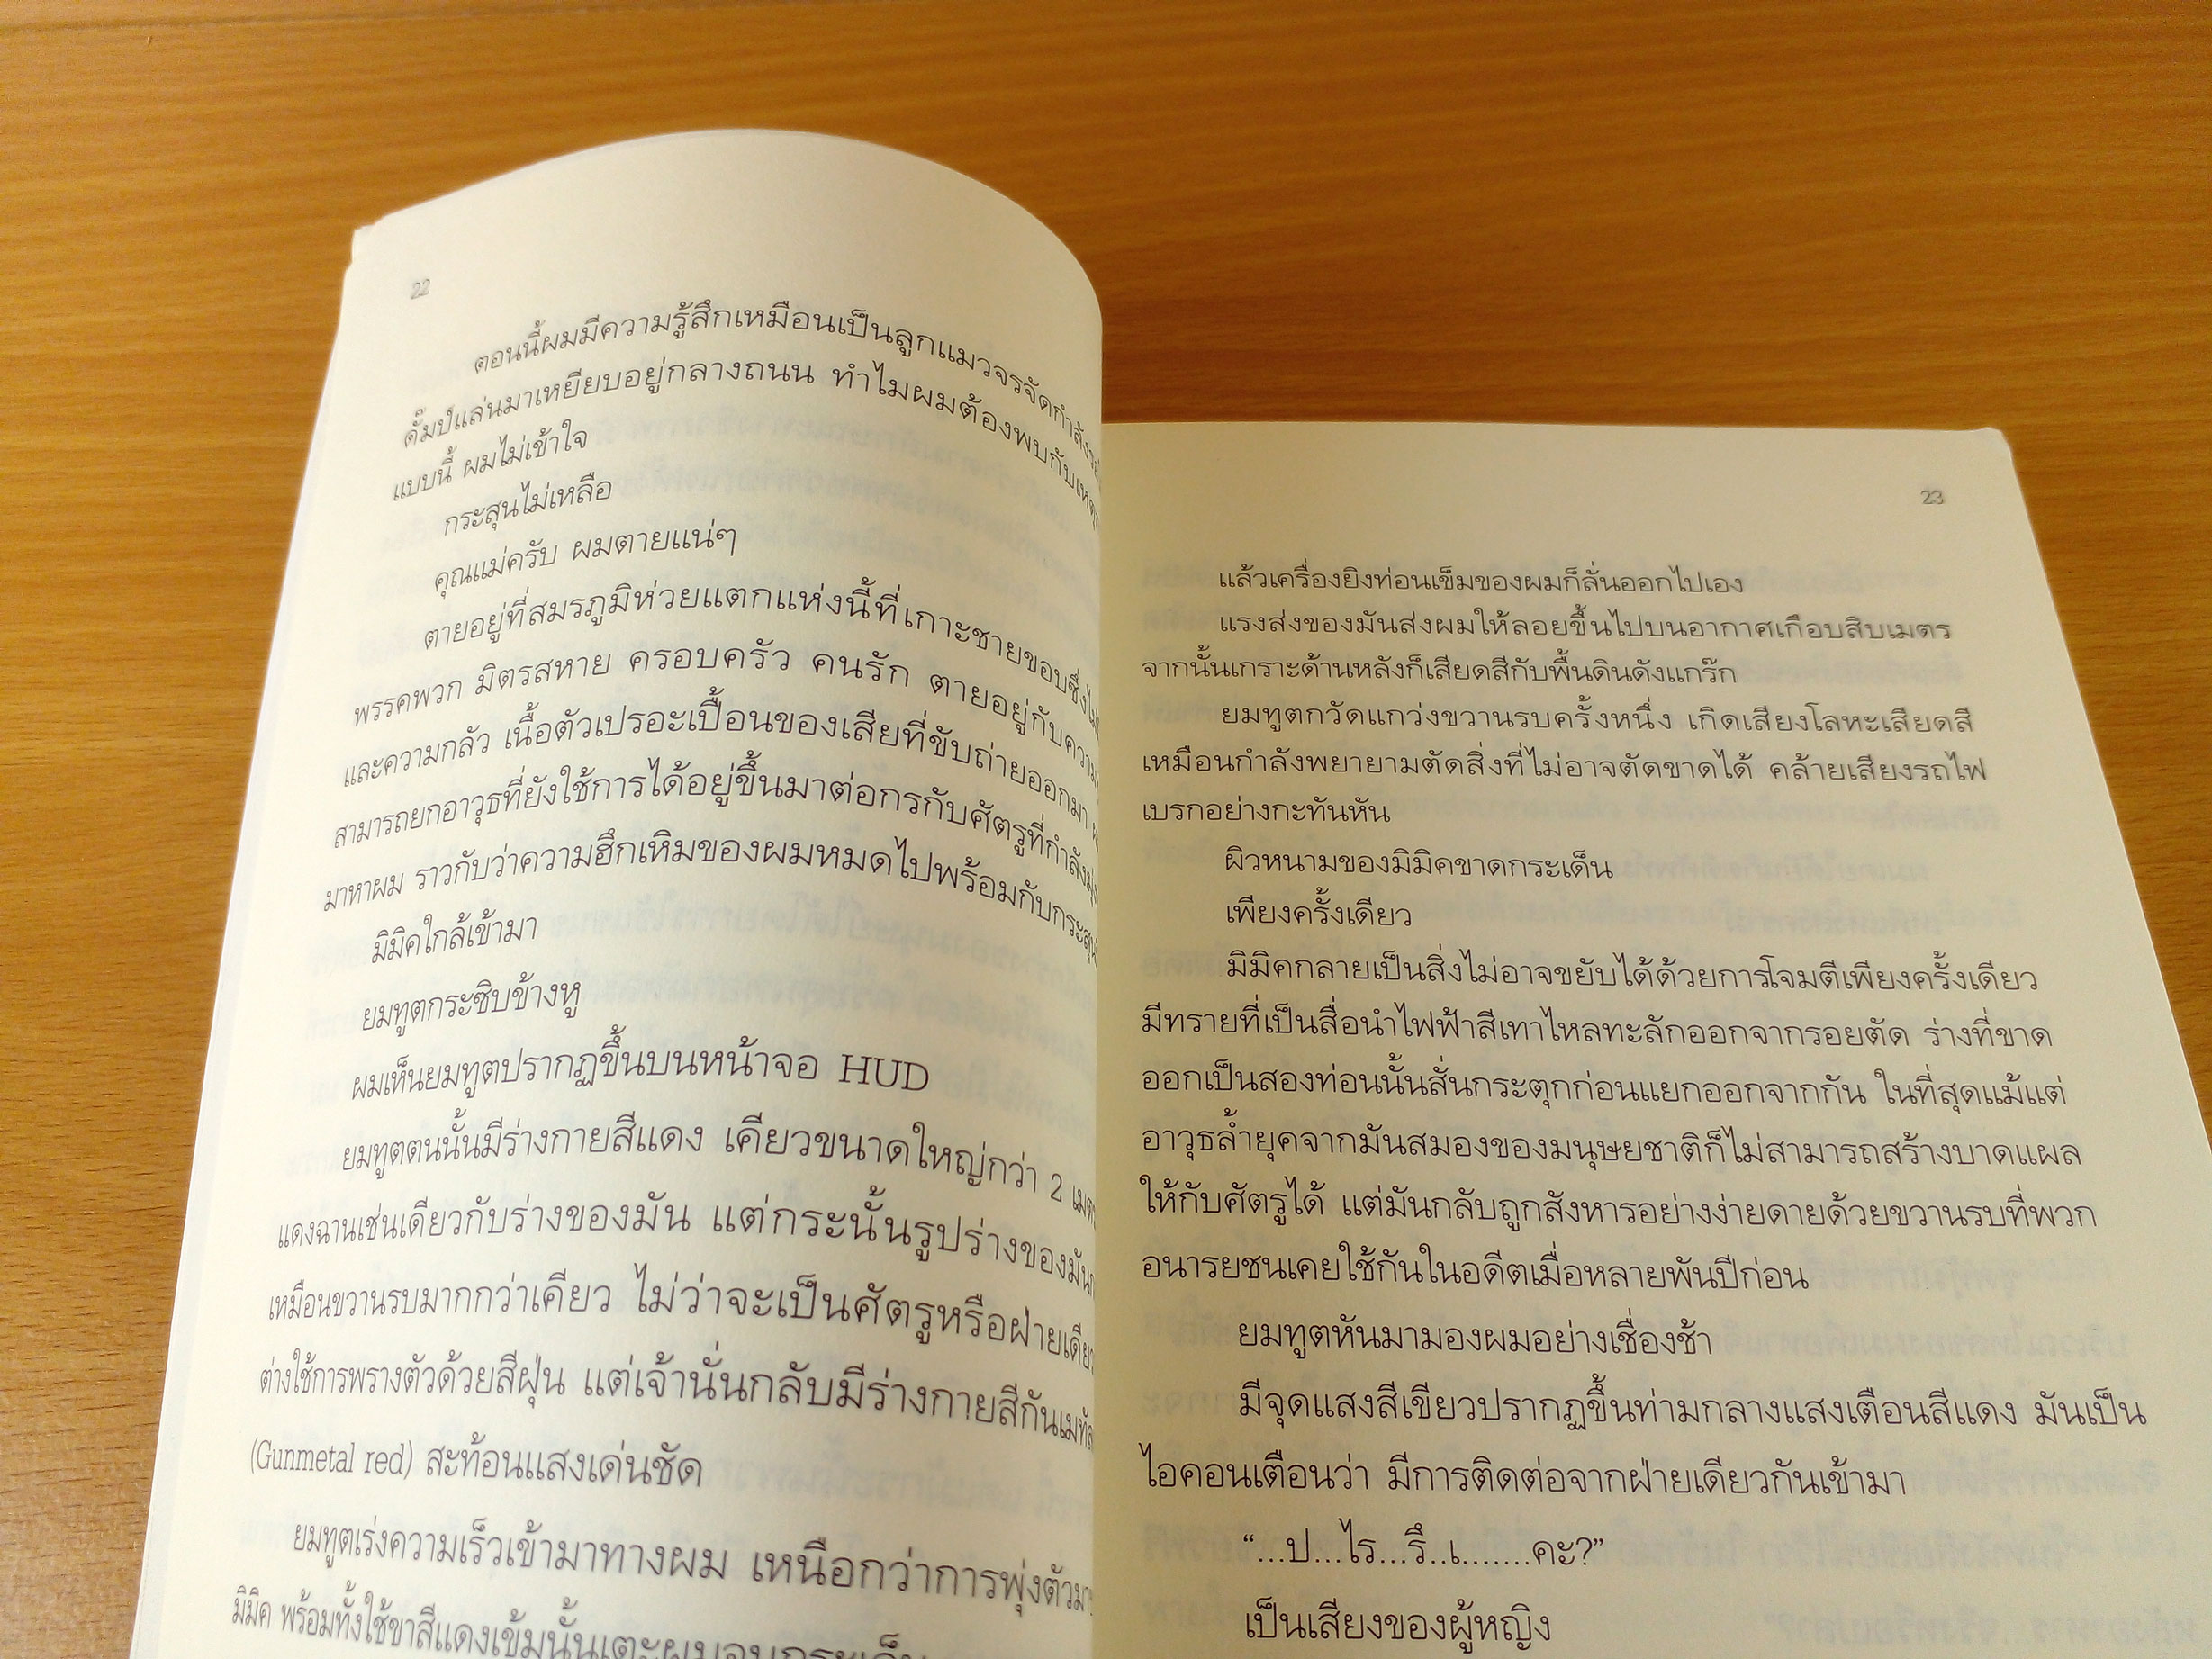 22
ตอนนี้ผมมีความรู้สึกเหมือนเป็นลูกแมวจรจัดกำลังรอ
ดั๊มป์แล่นมาเหยียบอยู่กลางถนน ทำไมผมต้องพบกับ
แบบนี้ ผมไม่เข้าใจ
กระสุนไม่เหลือ
คุณแม่ครับ ผมตายแน่ๆ
ตายอยู่ที่สมรภูมิห่วยแตกแห่งนี้ที่เกาะชายขอบซึ่ง
พรรคพวก มิตรสหาย ครอบครัว คนรัก ตายอยู่กับความ
และความกลัว เนื้อตัวเปรอะเปื้อนของเสียที่ขับถ่ายออกมา
สามารถยกอาวุธที่ยังใช้การได้อยู่ขึ้นมาต่อกรกับศัตรูที่กำลัง
มาหาผม ราวกับว่าความฮึกเหิมของผมหมดไปพร้อมกับกระสุน
มิมิคใกล้เข้ามา
ยมทูตกระซิบข้างหู
ผมเห็นยมทูตปรากฏขึ้นบนหน้าจอ HUD
ยมทูตตนนั้นมีร่างกายสีแดง เคียวขนาดใหญ่กว่า 2 เมตร
แดงฉานเช่นเดียวกับร่างของมัน แต่กระนั้นรูปร่างของมัน
เหมือนขวานรบมากกว่าเคียว ไม่ว่าจะเป็นศัตรูหรือฝ่ายเดียว
ต่างใช้การพรางตัวด้วยสีฝุ่น แต่เจ้านั่นกลับมีร่างกายสีกันเมทัล
(Gunmetal red) สะท้อนแสงเด่นชัด
ยมทูตเร่งความเร็วเข้ามาทางผม เหนือกว่าการพุ่งตัว
มิมิค พร้อมทั้งใช้ขาสีแดงเข้มนั้นเตะผมจนกระเด็น
23
แล้วเครื่องยิงท่อนเข็มของผมก็ลั่นออกไปเอง
แรงส่งของมันส่งผมให้ลอยขึ้นไปบนอากาศเกือบสิบเมตร
จากนั้นเกราะด้านหลังก็เสียดสีกับพื้นดินดังแกร๊ก
ยมทูตกวัดแกว่งขวานรบครั้งหนึ่ง เกิดเสียงโลหะเสียดสี
เหมือนกำลังพยายามตัดสิ่งที่ไม่อาจตัดขาดได้ คล้ายเสียงรถไฟ
เบรกอย่างกะทันหัน
ผิวหนามของมิมิคขาดกระเด็น
เพียงครั้งเดียว
มิมิคกลายเป็นสิ่งไม่อาจขยับได้ด้วยการโจมตีเพียงครั้งเดียว
มีทรายที่เป็นสื่อนำไฟฟ้าสีเทาไหลทะลักออกจากรอยตัด ร่างที่ขาด
ออกเป็นสองท่อนนั้นสั่นกระตุกก่อนแยกออกจากกัน ในที่สุดแม้แต่
อาวุธล้ำยุคจากมันสมองของมนุษยชาติก็ไม่สามารถสร้างบาดแผล
ให้กับศัตรูได้ แต่มันกลับถูกสังหารอย่างง่ายดายด้วยขวานรบที่พวก
อนารยชนเคยใช้กันในอดีตเมื่อหลายพันปีก่อน
ยมทูตหันมามองผมอย่างเชื่องช้า
มีจุดแสงสีเขียวปรากฏขึ้นท่ามกลางแสงเตือนสีแดง มันเป็น
ไอคอนเตือนว่า มีการติดต่อจากฝ่ายเดียวกันเข้ามา
“...ป...ไร...รึ..เ.......คะ?”
เป็นเสียงของผู้หญิง